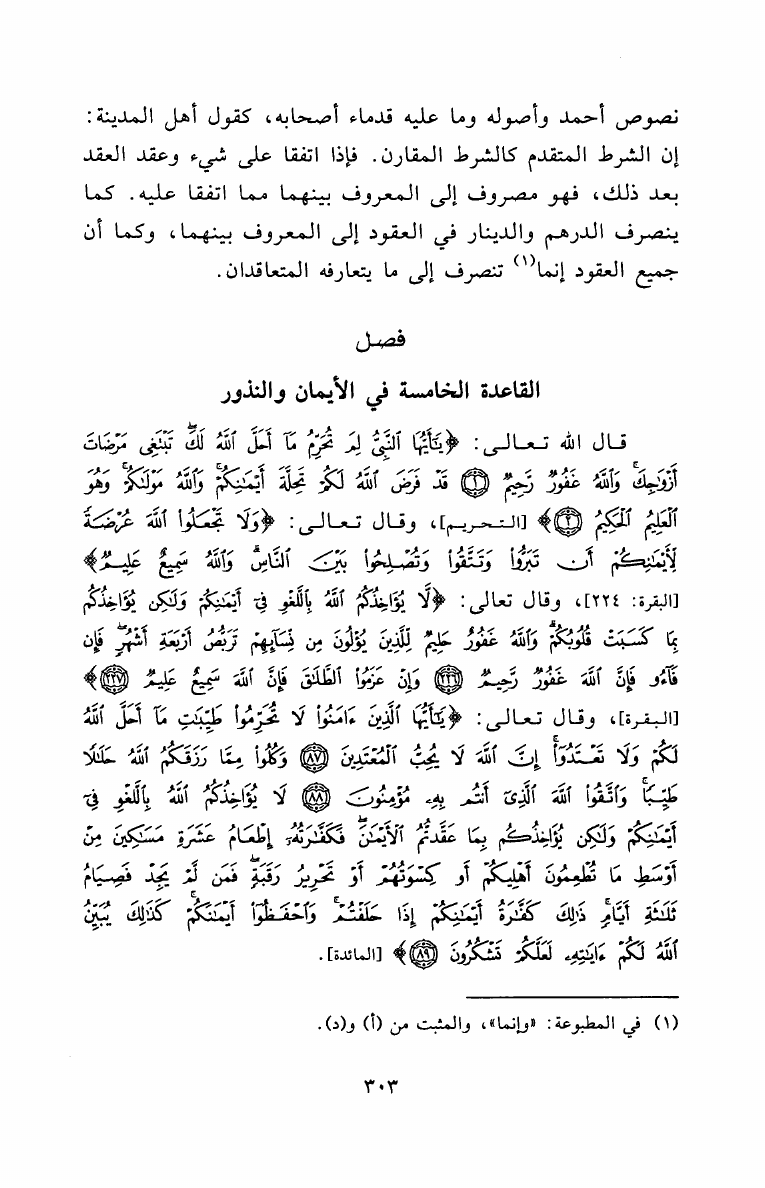 نصوص أحمد وأصوله وما عليه قدماء أصحابه، كقول أهل المدينة:
إن الشرط المتقدم كالشرط المقارن. فإذا اتفقا على شيء وعقد العقد
بعد ذلك، فهو مصروف إلى المعروف بينهما مما اتفقا عليه. كما
ينصرف الدرهم والدينار في العقود إلى المعروف بينهما، وكما أن
جميع العقود إنما(١) تنصرف إلى ما يتعارفه المتعاقدان.
فصل
القاعدة الخامسة في الأيمان والنذور
قال الله تعالى: ﴿يَٰٓأَيُّهَا ٱلنَّبِيُّ لِمَ تُحَرِّمُ مَآ أَحَلَّ ٱللَّهُ لَكَۖ تَبْتَغِي مَرْضَاتَ
أَزْوَٰجِكَۚ وَٱللَّهُ غَفُورٌ رَّحِيمٌ ۝١ قَدْ فَرَضَ ٱللَّهُ لَكُمْ تَحِلَّةَ أَيْمَٰنِكُمْۚ وَٱللَّهُ مَوْلَىٰكُمْۖ وَهُوَ
ٱلْعَلِيمُ ٱلْحَكِيمُ ۝٢﴾ [التحريم]، وقال تعالى: ﴿وَلَا تَجْعَلُوا۟ ٱللَّهَ عُرْضَةً
لِّأَيْمَٰنِكُمْ أَن تَبَرُّوا۟ وَتَتَّقُوا۟ وَتُصْلِحُوا۟ بَيْنَ ٱلنَّاسِۗ وَٱللَّهُ سَمِيعٌ عَلِيمٌ﴾
[البقرة: ٢٢٤]، وقال تعالى: ﴿لَّا يُؤَاخِذُكُمُ ٱللَّهُ بِٱللَّغْوِ فِىٓ أَيْمَٰنِكُمْ وَلَٰكِن يُؤَاخِذُكُم
بِمَا كَسَبَتْ قُلُوبُكُمْۗ وَٱللَّهُ غَفُورٌ حَلِيمٌ لِّلَّذِينَ يُؤْلُونَ مِن نِّسَآئِهِمْ تَرَبُّصُ أَرْبَعَةِ أَشْهُرٍۖ فَإِن
فَآءُو فَإِنَّ ٱللَّهَ غَفُورٌ رَّحِيمٌ ۝٢٢٦ وَإِنْ عَزَمُوا۟ ٱلطَّلَٰقَ فَإِنَّ ٱللَّهَ سَمِيعٌ عَلِيمٌ ۝٢٢٧﴾
[البقرة]، وقال تعالى: ﴿يَٰٓأَيُّهَا ٱلَّذِينَ ءَامَنُوا۟ لَا تُحَرِّمُوا۟ طَيِّبَٰتِ مَآ أَحَلَّ ٱللَّهُ
لَكُمْ وَلَا تَعْتَدُوٓا۟ۚ إِنَّ ٱللَّهَ لَا يُحِبُّ ٱلْمُعْتَدِينَ ۝٨٧ وَكُلُوا۟ مِمَّا رَزَقَكُمُ ٱللَّهُ حَلَٰلًا
طَيِّبًاۚ وَٱتَّقُوا۟ ٱللَّهَ ٱلَّذِىٓ أَنتُم بِهِۦ مُؤْمِنُونَ ۝٨٨ لَا يُؤَاخِذُكُمُ ٱللَّهُ بِٱللَّغْوِ فِىٓ
أَيْمَٰنِكُمْ وَلَٰكِن يُؤَاخِذُكُم بِمَا عَقَّدتُّمُ ٱلْأَيْمَٰنَۖ فَكَفَّٰرَتُهُۥٓ إِطْعَامُ عَشَرَةِ مَسَٰكِينَ مِنْ
أَوْسَطِ مَا تُطْعِمُونَ أَهْلِيكُمْ أَوْ كِسْوَتُهُمْ أَوْ تَحْرِيرُ رَقَبَةٍۖ فَمَن لَّمْ يَجِدْ فَصِيَامُ
ثَلَٰثَةِ أَيَّامٍۚ ذَٰلِكَ كَفَّٰرَةُ أَيْمَٰنِكُمْ إِذَا حَلَفْتُمْۚ وَٱحْفَظُوٓا۟ أَيْمَٰنَكُمْۚ كَذَٰلِكَ يُبَيِّنُ
ٱللَّهُ لَكُمْ ءَايَٰتِهِۦ لَعَلَّكُمْ تَشْكُرُونَ ۝٨٩﴾ [المائدة].
(١) في المطبوعة: «وإنما»، والمثبت من (أ) و(د).
٣٠٣